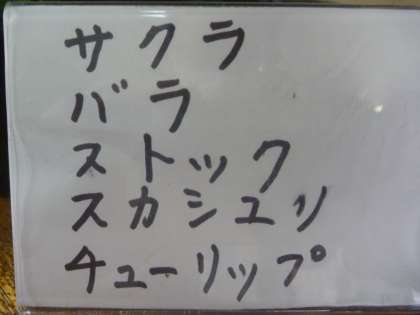 サクラ
バラ
ストック
スカシユリ
チューリップ